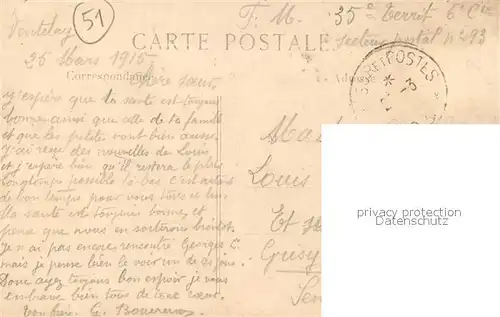 51
F. M. 35e Territ 6e Cie
Secteur postal no 93
Ventelay
CARTE POSTALE
26 Mars 1915
Correspondance
Chère sœur
TRESOR ET POSTES
J'espère que ta santé est toujours
bonne ainsi que celle de ta famille
et que les petits vont bien aussi.
J'ai reçu des nouvelles de Louis
et j'espère bien qu'il restera le plus
longtemps possible là-bas c'est autant
de bon temps pour vous tous
Ma santé est toujours bonne, et
pense que nous en sortirons bientôt.
Je n'ai pas encore rencontré Georges C.
mais je pense bien le voir un de ces jours.
Donc ayez toujours bon espoir je vous
embrasse bien tous de tout cœur.
Ton frère. G.
Louis
Et
Grisy
privacy protection
Schutz der Privatsphäre